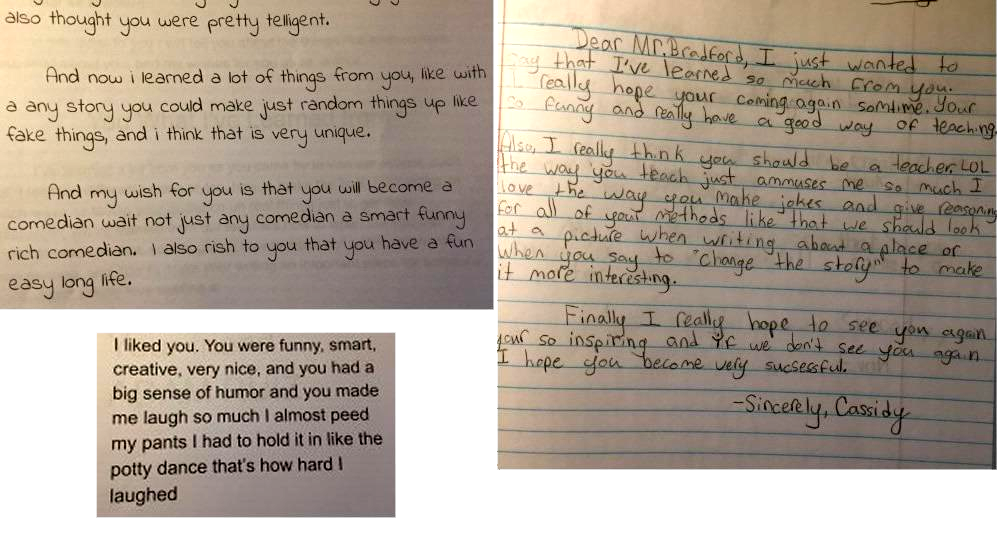 also thought you were pretty telligent.
And now i learned a lot of things from you, like with
a any story you could make just random things up like
fake things, and i think that is very unique.
And my wish for you is that you will become a
comedian wait not just any comedian a smart funny
rich comedian. I also rish to you that you have a fun
easy long life.
I liked you. You were funny, smart,
creative, very nice, and you had a
big sense of humor and you made
me laugh so much I almost peed
my pants I had to hold it in like the
potty dance that's how hard I
laughed
Dear Mr. Bradford, I just wanted to
say that I've learned so much from you.
I really hope your coming again somtime. Your
so funny and really have a good way of teaching
Also, I really think you should be a teacher. LOL
the way you teach just ammuses me so much I
love the way you make jokes and give reasoning
for all of your methods like that we should look
at a picture when writing about a place or
when you say to "change the story" to make
it more interesting.
Finally I really hope to see you again
your so inspiring and if we don't see you again
I hope you become very sucsessful.
-Sincerely, Cassidy